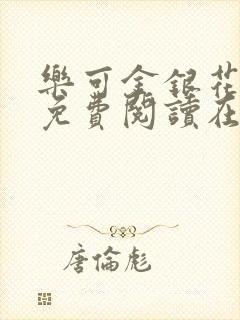 樂可金銀花
免費閱讀在
唐倫彪